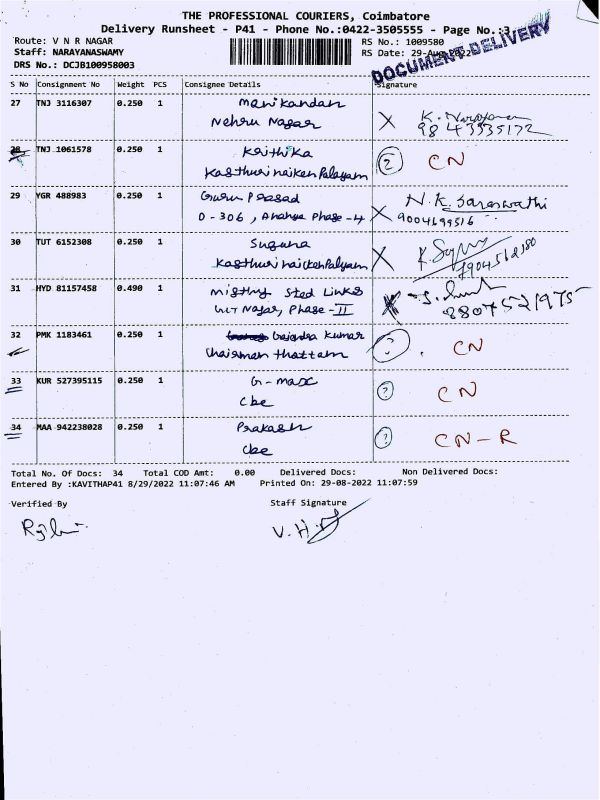 THE PROFESSIONAL COURIERS, Coimbatore
Delivery Runsheet - P41 - Phone No.:0422-3505555 - Page No.:3
Route: V N R NAGAR
RS No.: 1009580
Staff: NARAYANASWAMY
RS Date: 29-Aug-2022
DRS No.: DCJB100958003
DOCUMENT DELIVERY
S No Consignment No Weight PCS Consignee Details Signature
27 TNJ 3116307 0.250 1 Manikandan
Nehru Nagar
X K. Narayanan
9843535172
28 TNJ 1061578 0.250 1 Krithika
Kasthuri naiken Palayam
? CN
29 YGR 488983 0.250 1 Guru Prasad
D-306, Ananya Phase-4
X N.K. Saraswathi
9004699516
30 TUT 6152308 0.250 1 Suguna
Kasthuri naicken Palyam
X
31 HYD 81157458 0.490 1 Sted Links
Nagar, Phase-II
8807521975
32 PMK 1183461 0.250 1 Gajendra Kumar
Chairman Thottam
? CN
33 KUR 527395115 0.250 1 G-max
Cbe
? CN
34 MAA 942238028 0.250 1 Prakash
Cbe
? CN-R
Total No. Of Docs: 34 Total COD Amt: 0.00 Delivered Docs: Non Delivered Docs:
Entered By :KAVITHAP41 8/29/2022 11:07:46 AM Printed On: 29-08-2022 11:07:59
Verified By Staff Signature